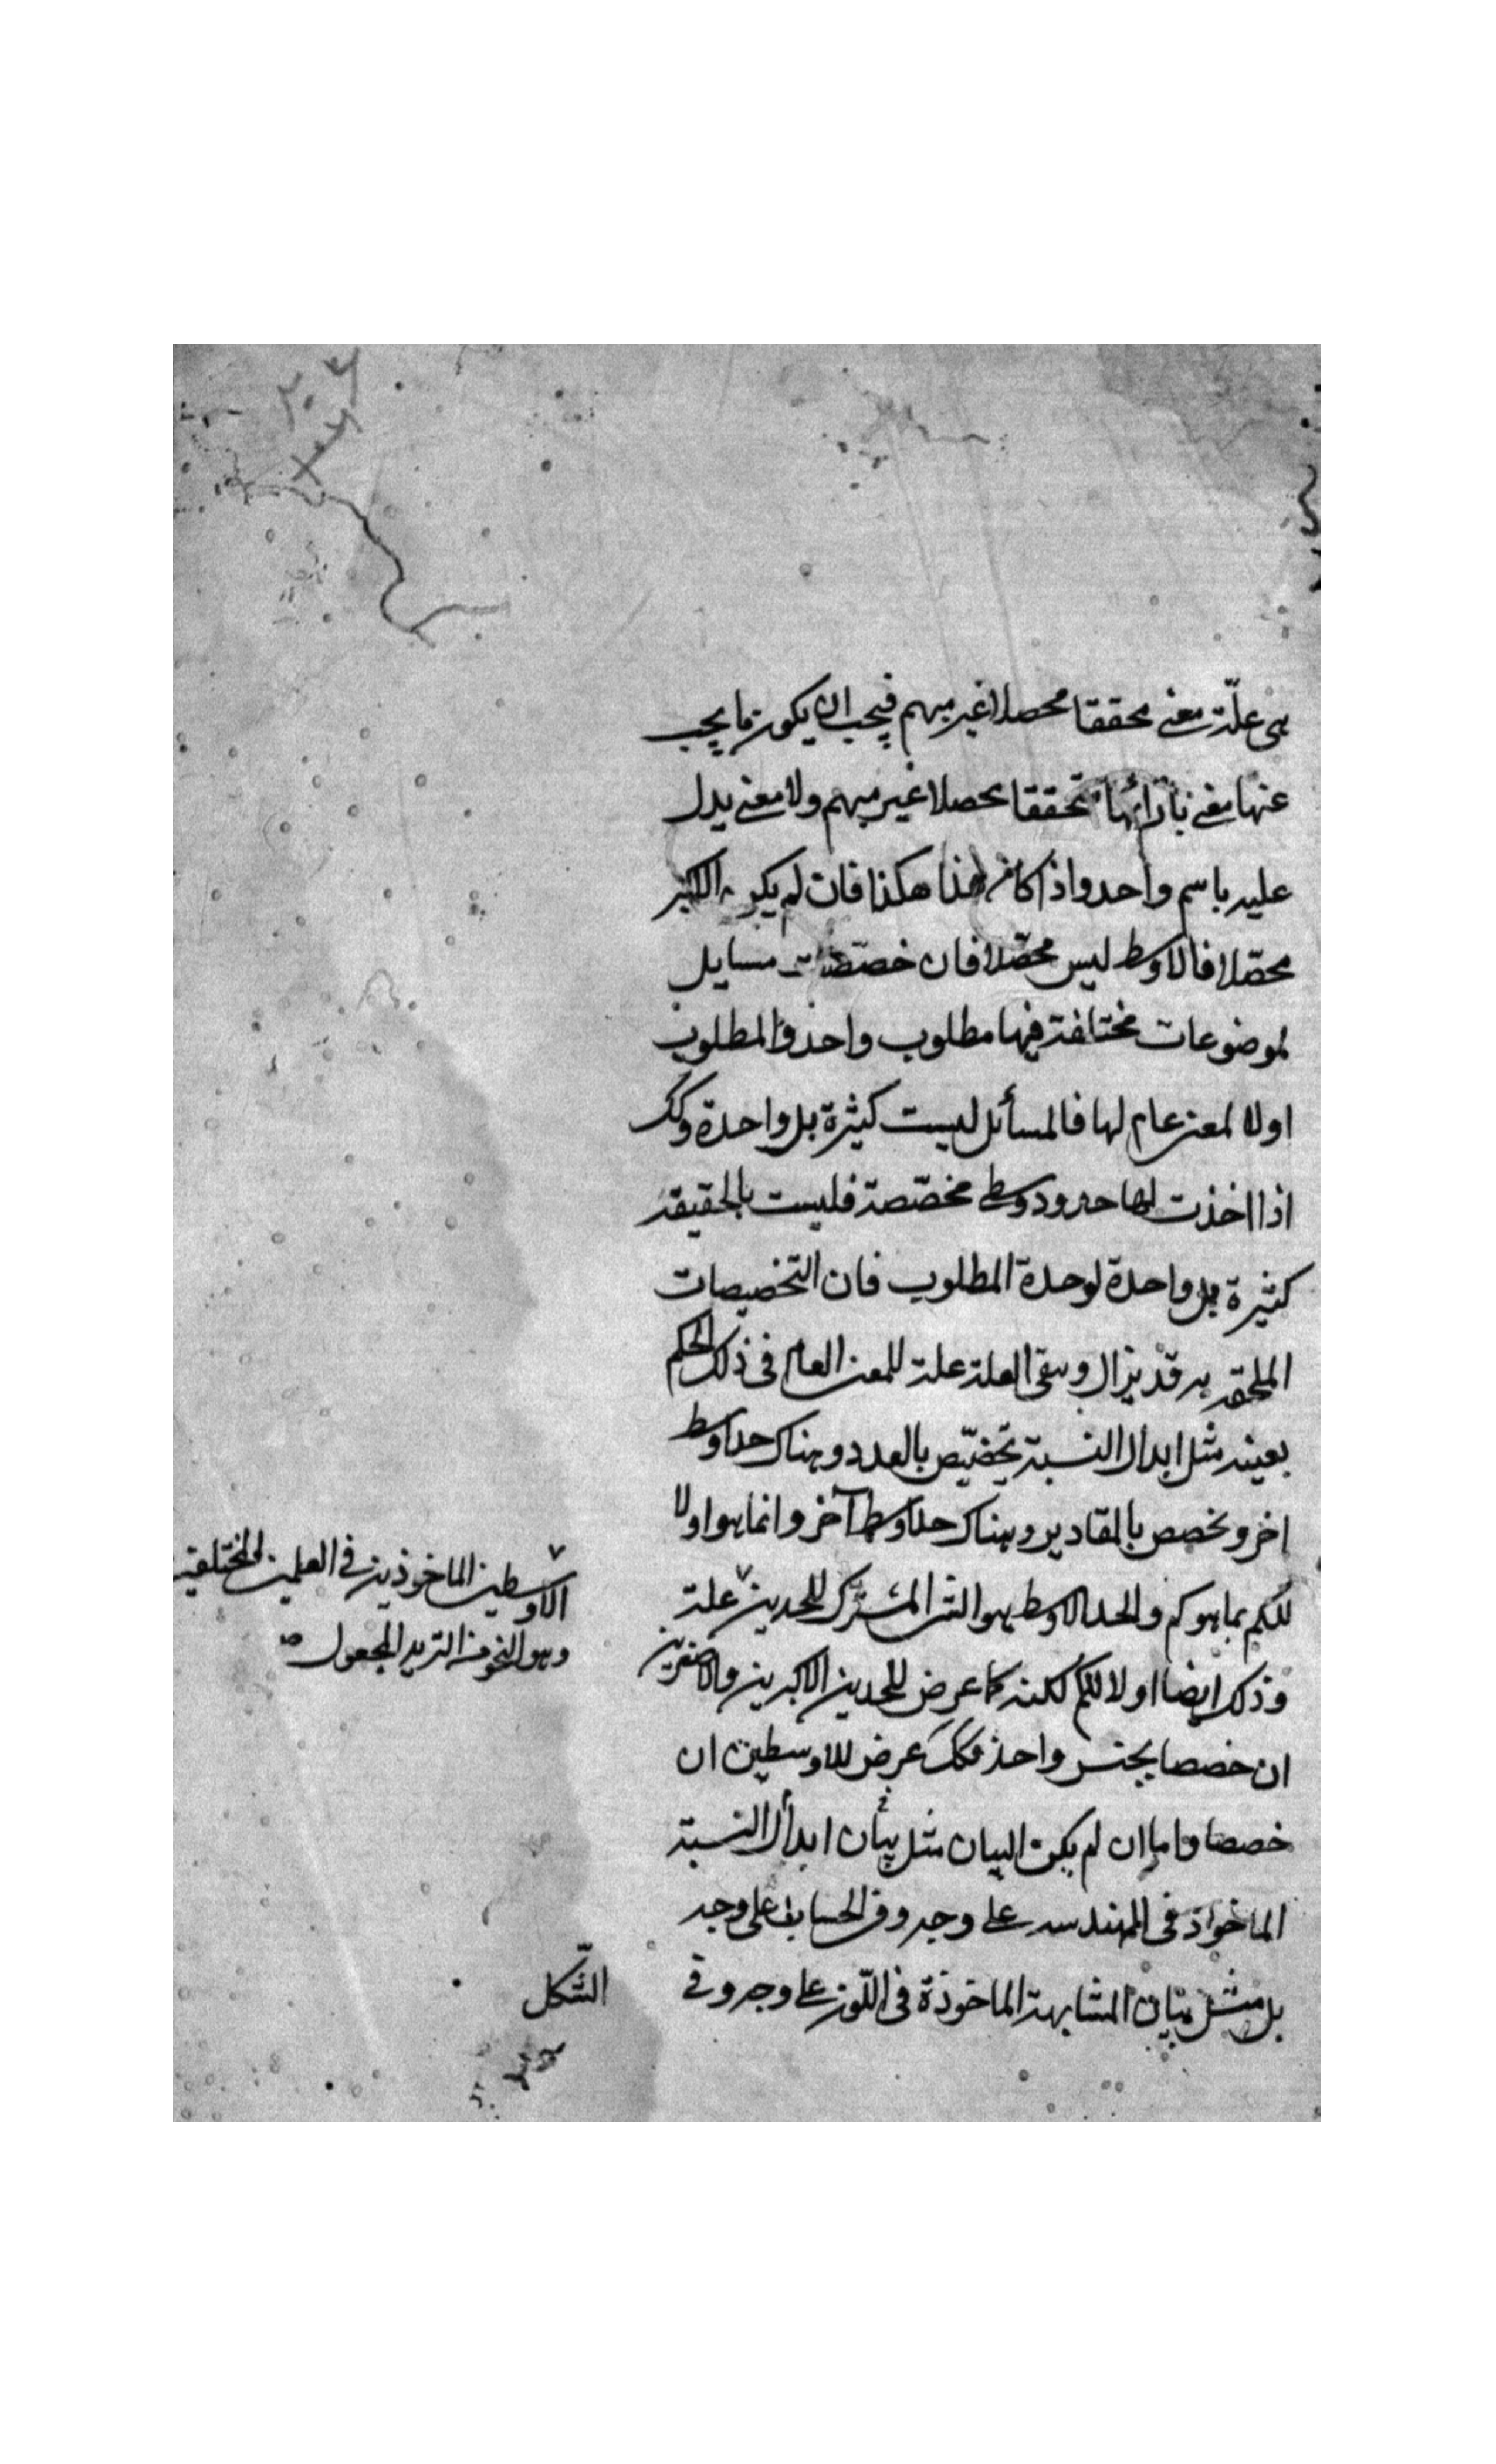 هى علّة معنى محققا محصلا غير مبهم فيجب ان يكون ما يجب
عنها معنى بازائها محققا محصلا غير مبهم ولا معنى يدل
عليه باسم واحد واذا كان هذا هكذا فان لم يكن الاكبر
محصّلا فالاوسط ليس محصّلا فان خصّصت مسايل
لموضوعات مختلفة فيها مطلوب واحد والمطلوب
اولا لمعنى عام لها فالمسأئل ليست كثيرة بل واحدة وكك
اذا اخذت لها حدود وسطى مخصّصة فليست بالحقيقة
كثيرة بل واحدة لوحدة المطلوب فان التخصيصات
الملحقة به قد يزال وسقى العلة علة للمعنى العام فى ذلك الحكم
بعينه مثل ابدال النسبة تخصّص بالعدد وهناك حد اوسط
اخر وتخصص بالمقادير وهناك حد اوسط آخر وانما هو اولا
للكم بما هو كم والحد الاوسط هو الشئ المشترك للحدين علة
وذلك ايضا اولا للكم لكنه كما عرض للحدين الاكبرين والاصغرين
ان خصصا بجنس واحد فكك عرض للاوسطين ان
خصصا واما ان لم يكن البيان مثل بيان ابدال النسبة
الماخواذ فى الهندسه على وجه وفى الحساب على وجه
بل مثل بيان المشابهة الماخوذة فى اللّون على وجه وفى
الاوسطين الماخوذين فى العلمين المختلفين
وهو النحو من التزيد المجعول صه
الشّكل